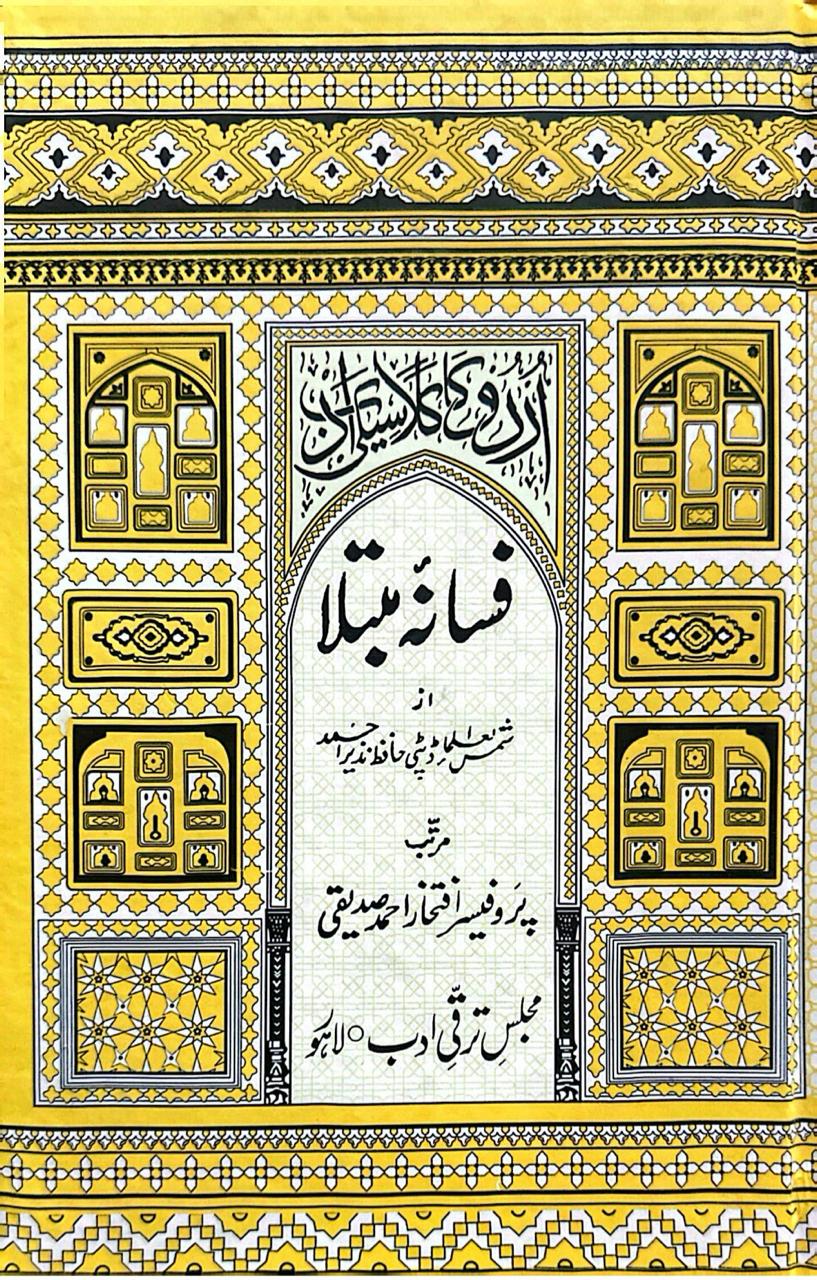 اُردو کا کلاسیکی ادب
فسانۂ مبتلا
از
شمس العلما ڈپٹی حافظ نذیر احمد
مرتّبہ
پروفیسر افتخار احمد صدیقی
مجلسِ ترقّیِ ادب ○ لاہور